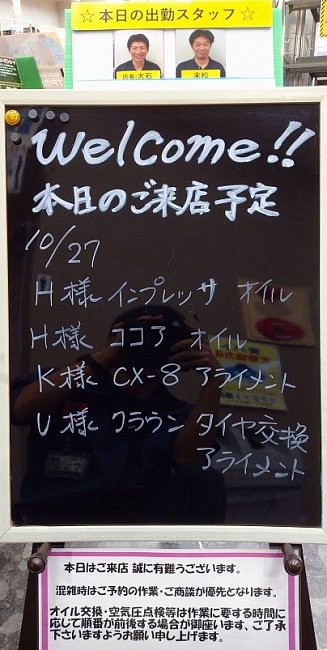 ☆ 本日の出勤スタッフ ☆
店長・大石
末松
Welcome!!
本日のご来店予定
10/27
H様 インプレッサ オイル
H様 ココア オイル
K様 CX-8 アライメント
U様 クラウン タイヤ交換
アライメント
本日はご来店 誠に有難うございます。
混雑時はご予約の作業・ご商談が優先となります。
オイル交換・空気圧点検等は作業に要する時間に
応じて順番が前後する場合が御座います、ご了承
下さいますようお願い申し上げます。